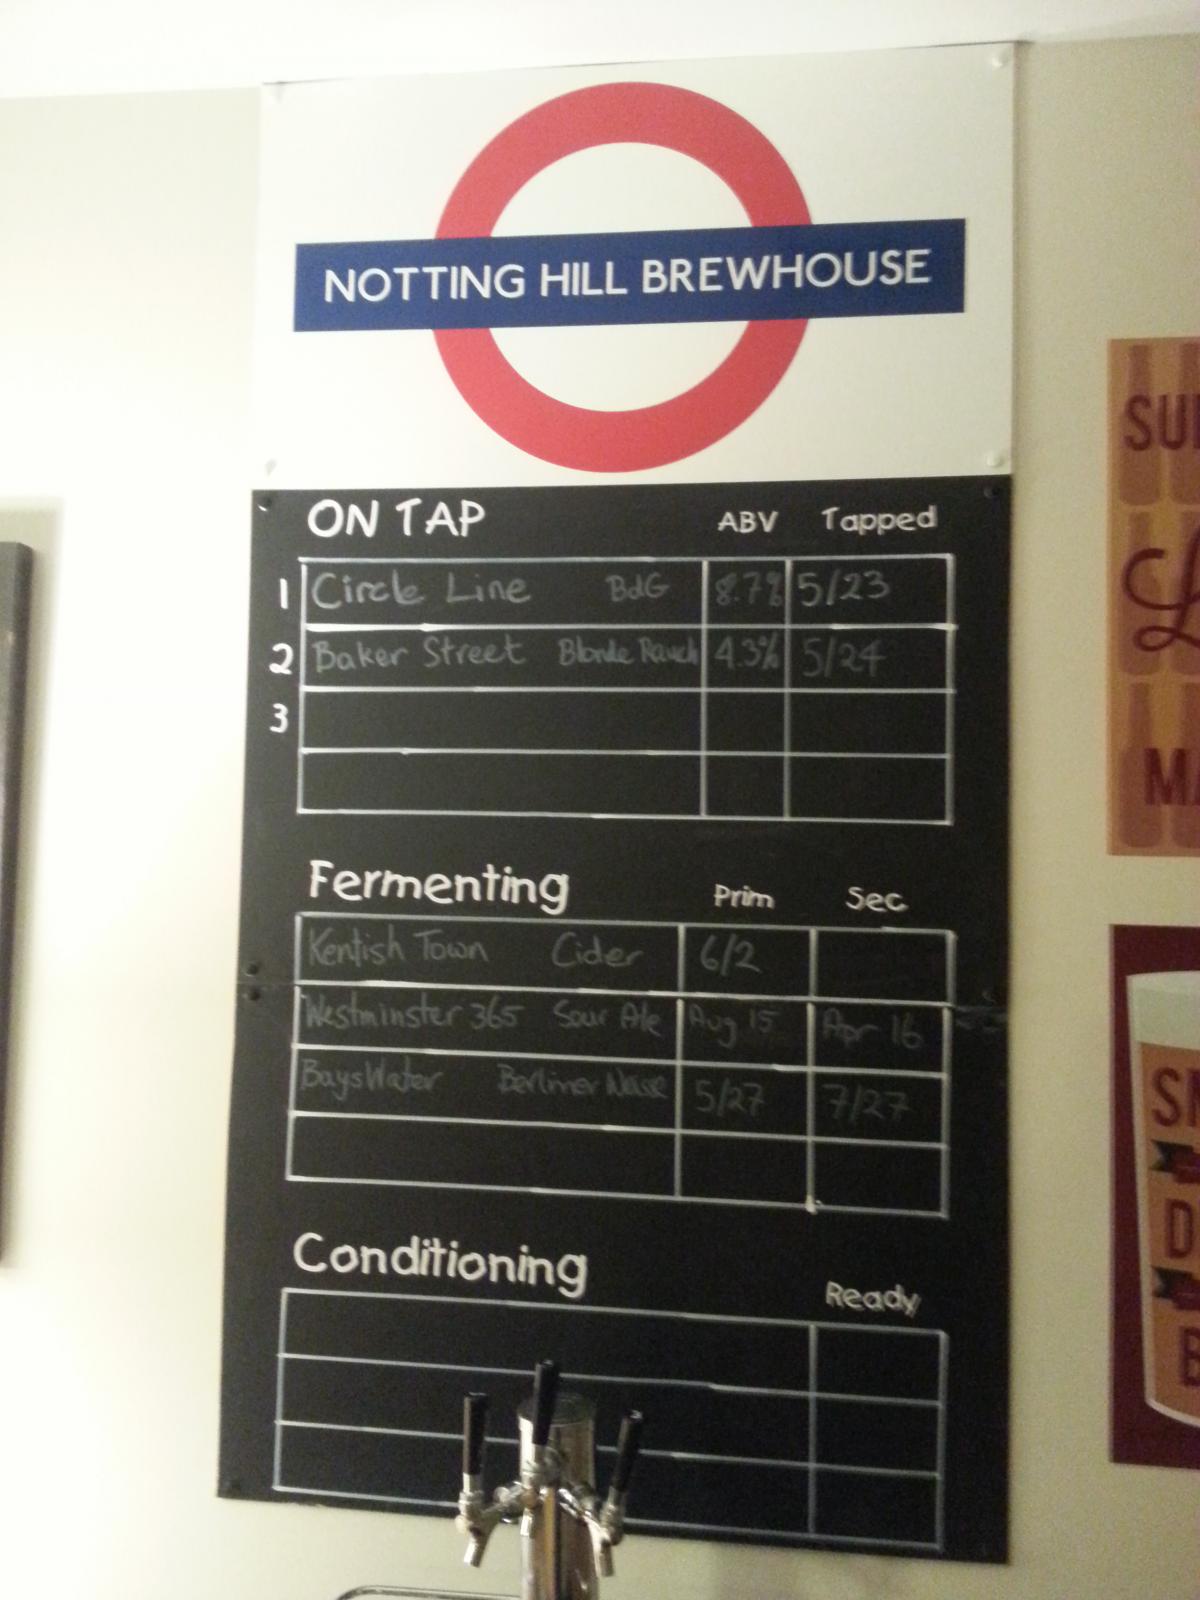 NOTTING HILL BREWHOUSE
ON TAP ABV Tapped
1 Circle Line BdG 8.7% 5/23
2 Baker Street Blonde Rauch 4.3% 5/24
3
Fermenting Prim Sec
Kentish Town Cider 6/2
Westminster 365 Sour Ale Aug 15 Apr 16
BaysWater Berliner 5/27 7/27
Conditioning Ready
SU
L
MA
S
D
B